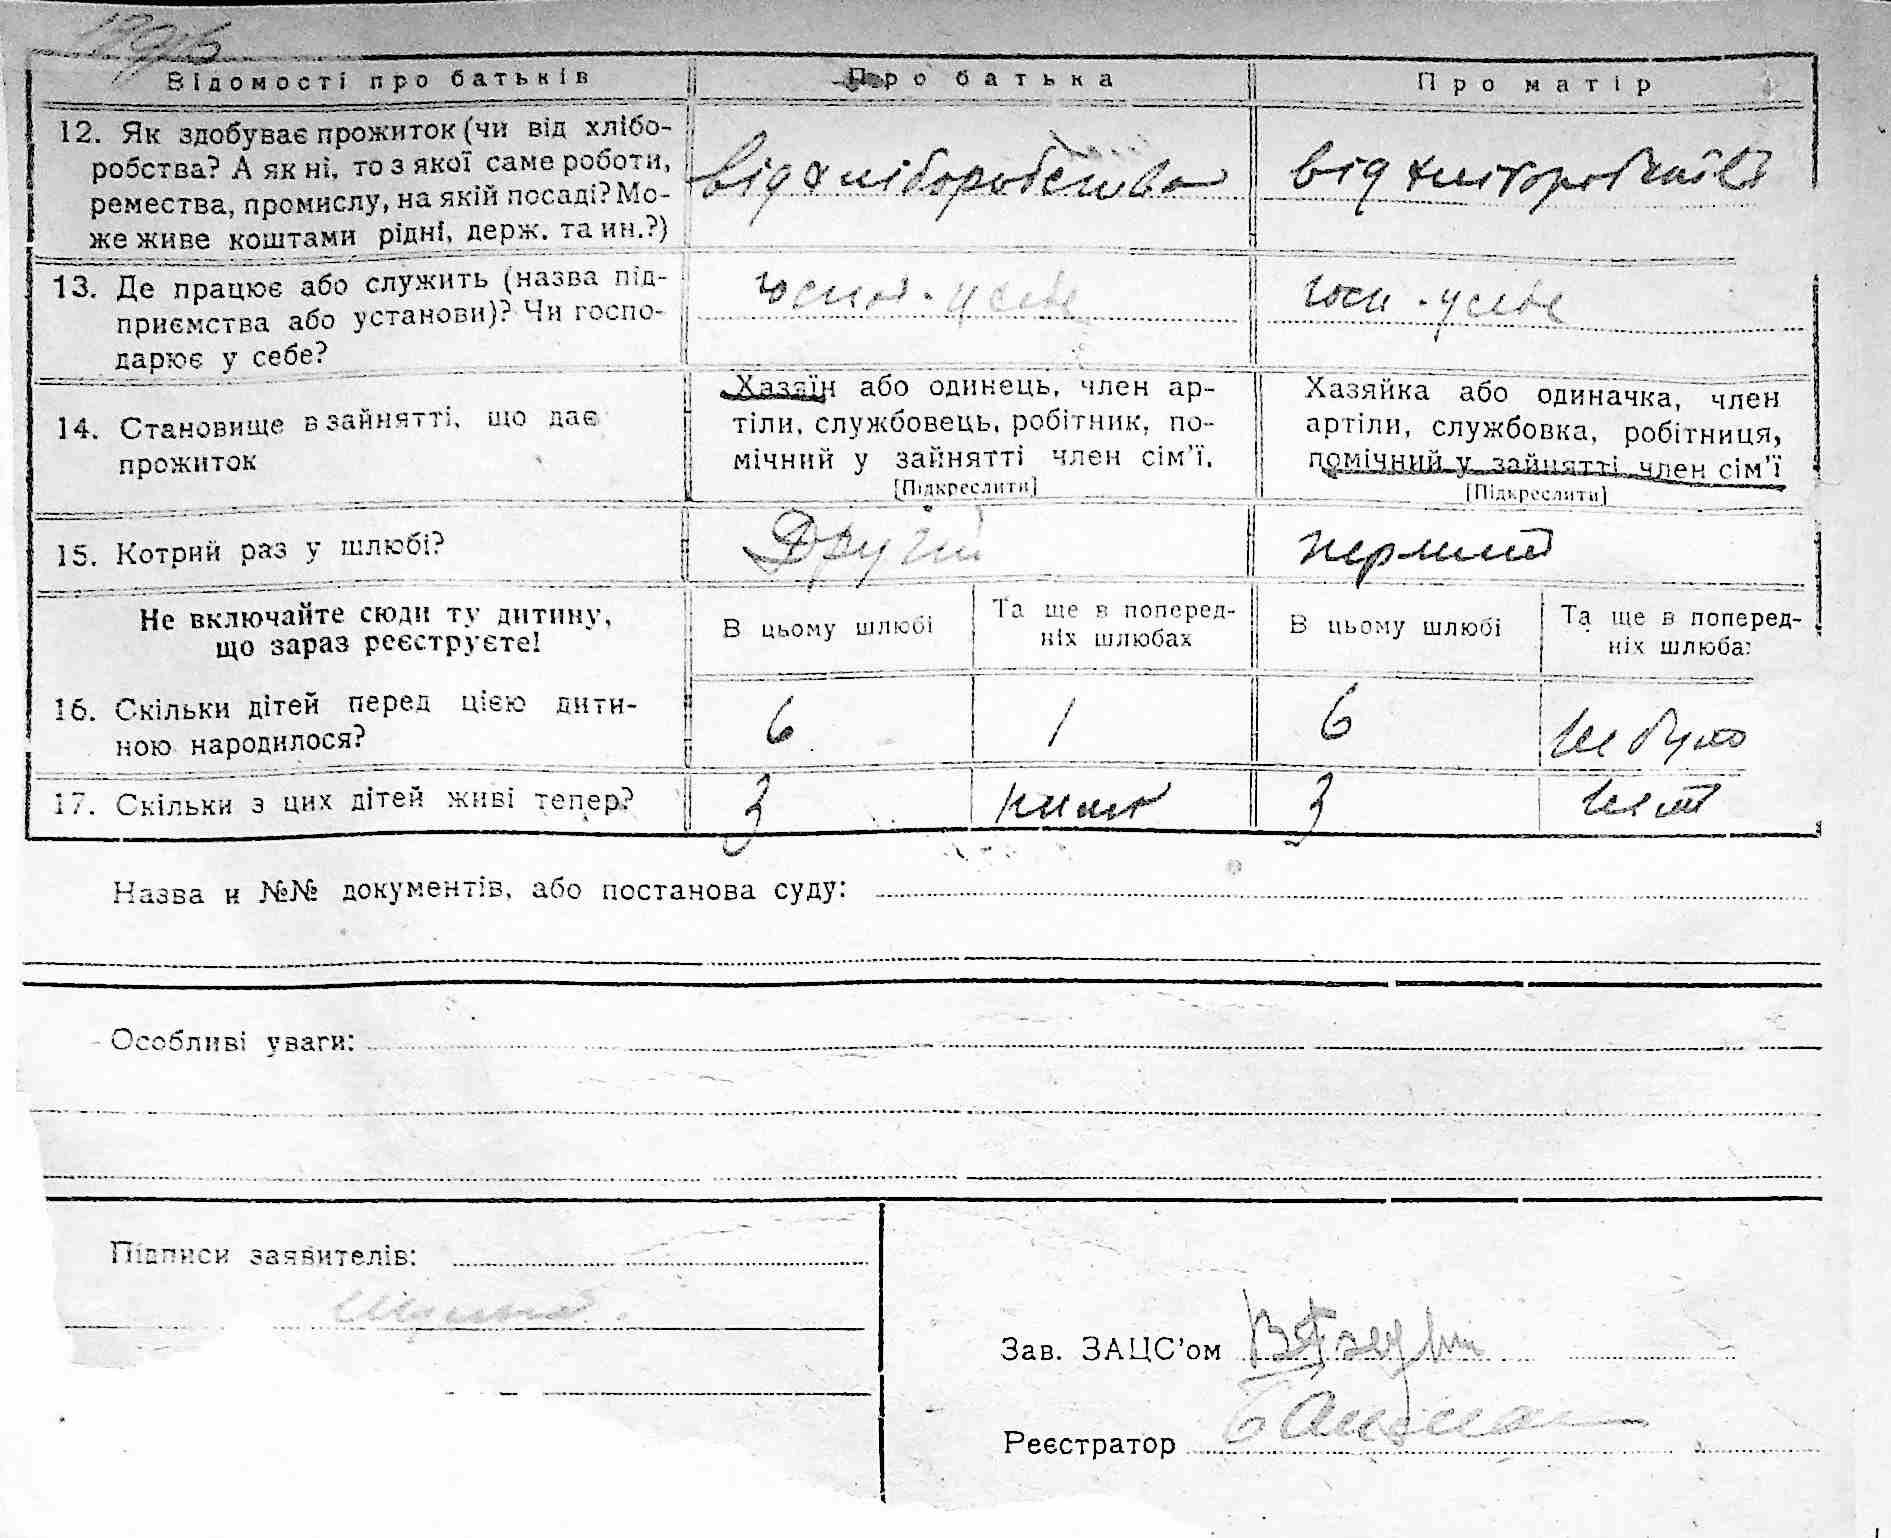 Відомості про батьків
Про батька
Про матір
12. Як здобуває прожиток (чи від хлібо-
робства? А як ні, то з якої саме роботи,
ремества, промислу, на якій посаді? Мо-
же живе коштами рідні, держ. та ин.?)
від хліборобства
від хліборобства
13. Де працює або служить (назва під-
приємства або установи)? Чи госпо-
дарює у себе?
госп. у себе
госп. у себе
14. Становище в зайнятті, що дає
прожиток
Хазяїн або одинець, член ар-
тіли, службовець, робітник, по-
мічний у зайнятті член сім'ї.
[Підкреслити]
Хазяйка або одиначка, член
артіли, службовка, робітниця,
помічний у зайнятті член сім'ї
[Підкреслити]
15. Котрий раз у шлюбі?
Другий
перший
Не включайте сюди ту дитину,
що зараз реєструєте!
В цьому шлюбі
Та ще в поперед-
ніх шлюбах
В цьому шлюбі
Та ще в поперед-
ніх шлюбах
16. Скільки дітей перед цією дити-
ною народилося?
6
1
6
не було
17. Скільки з цих дітей живі тепер?
3
3
Назва и №№ документів, або постанова суду:
Особливі уваги:
Підписи заявителів:
Зав. ЗАЦС'ом
Реєстратор